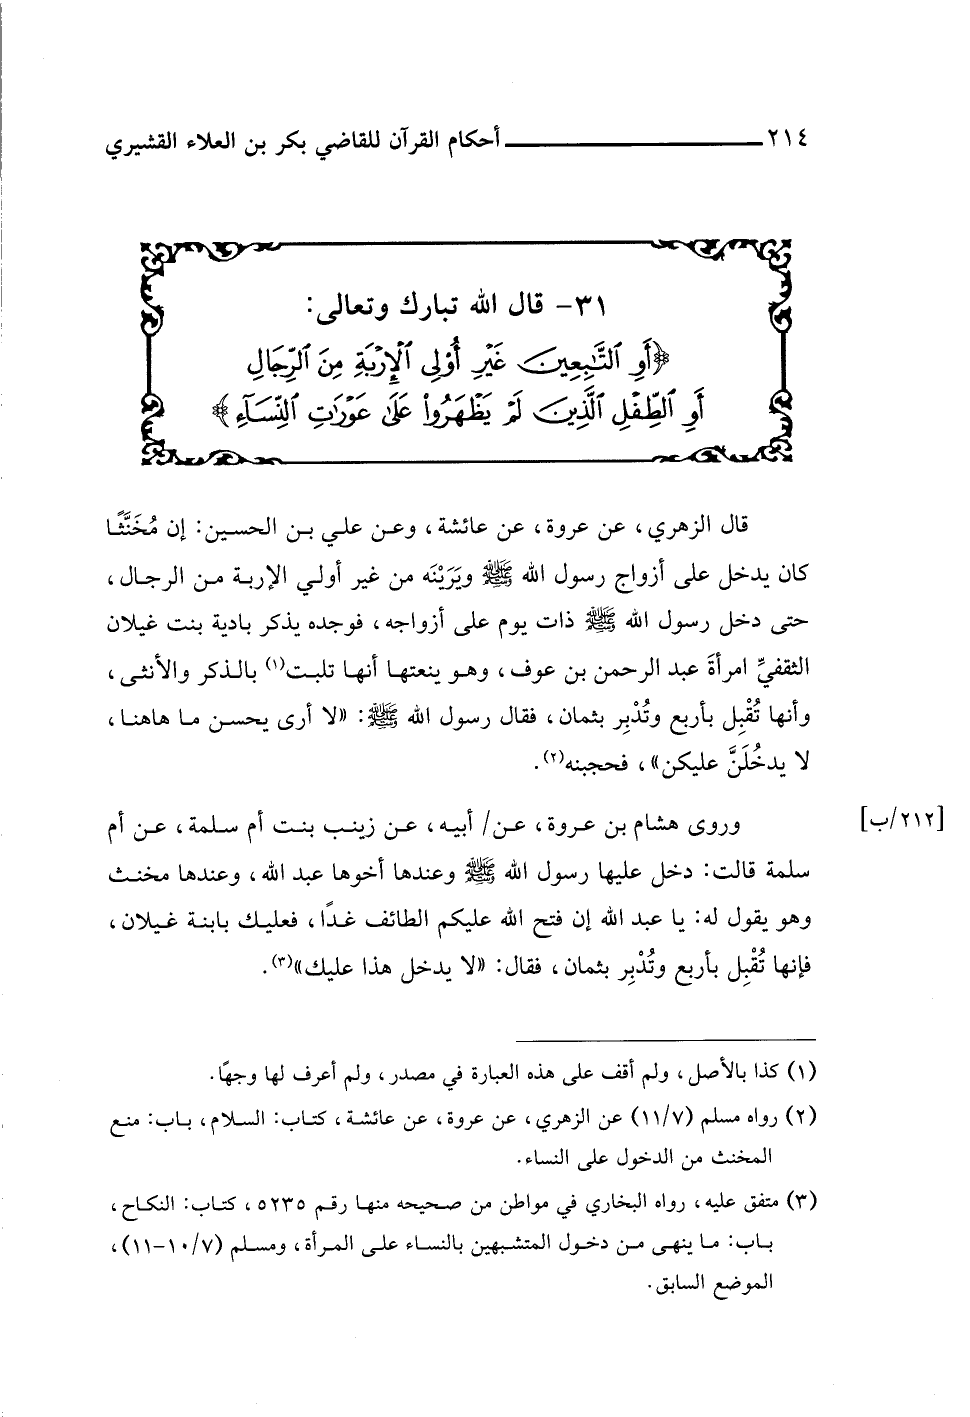 ٢١٤ أحكام القرآن للقاضي بكر بن العلاء القشيري
٣١- قال الله تبارك وتعالى:
﴿أَوِ ٱلتَّٰبِعِينَ غَيْرِ أُوْلِي ٱلْإِرْبَةِ مِنَ ٱلرِّجَالِ
أَوِ ٱلطِّفْلِ ٱلَّذِينَ لَمْ يَظْهَرُواْ عَلَىٰ عَوْرَٰتِ ٱلنِّسَآءِ﴾
قال الزهري، عن عروة، عن عائشة، وعن علي بن الحسين: إن مُخَنَّثًا
كان يدخل على أزواج رسول الله ﷺ ويَرَيْنَه من غير أولي الإربة من الرجال،
حتى دخل رسول الله ﷺ ذات يوم على أزواجه، فوجده يذكر بادية بنت غيلان
الثقفيِّ امرأةَ عبد الرحمن بن عوف، وهو ينعتها أنها تلبت(١) بالذكر والأنثى،
وأنها تُقْبِل بأربع وتُدْبِر بثمان، فقال رسول الله ﷺ: «لا أرى يحسن ما هاهنا،
لا يدخُلَنَّ عليكن»، فحجبنه(٢).
وروى هشام بن عروة، عن/ أبيه، عن زينب بنت أم سلمة، عن أم [٢١٢/ب]
سلمة قالت: دخل عليها رسول الله ﷺ وعندها أخوها عبد الله، وعندها مخنث
وهو يقول له: يا عبد الله إن فتح الله عليكم الطائف غدًا، فعليك بابنة غيلان،
فإنها تُقْبِل بأربع وتُدْبِر بثمان، فقال: «لا يدخل هذا عليك»(٣).
(١) كذا بالأصل، ولم أقف على هذه العبارة في مصدر، ولم أعرف لها وجهًا.
(٢) رواه مسلم (١١/٧) عن الزهري، عن عروة، عن عائشة، كتاب: السلام، باب: منع
المخنث من الدخول على النساء.
(٣) متفق عليه، رواه البخاري في مواطن من صحيحه منها رقم ٥٢٣٥، كتاب: النكاح،
باب: ما ينهى من دخول المتشبهين بالنساء على المرأة، ومسلم (١٠/٧-١١)،
الموضع السابق.